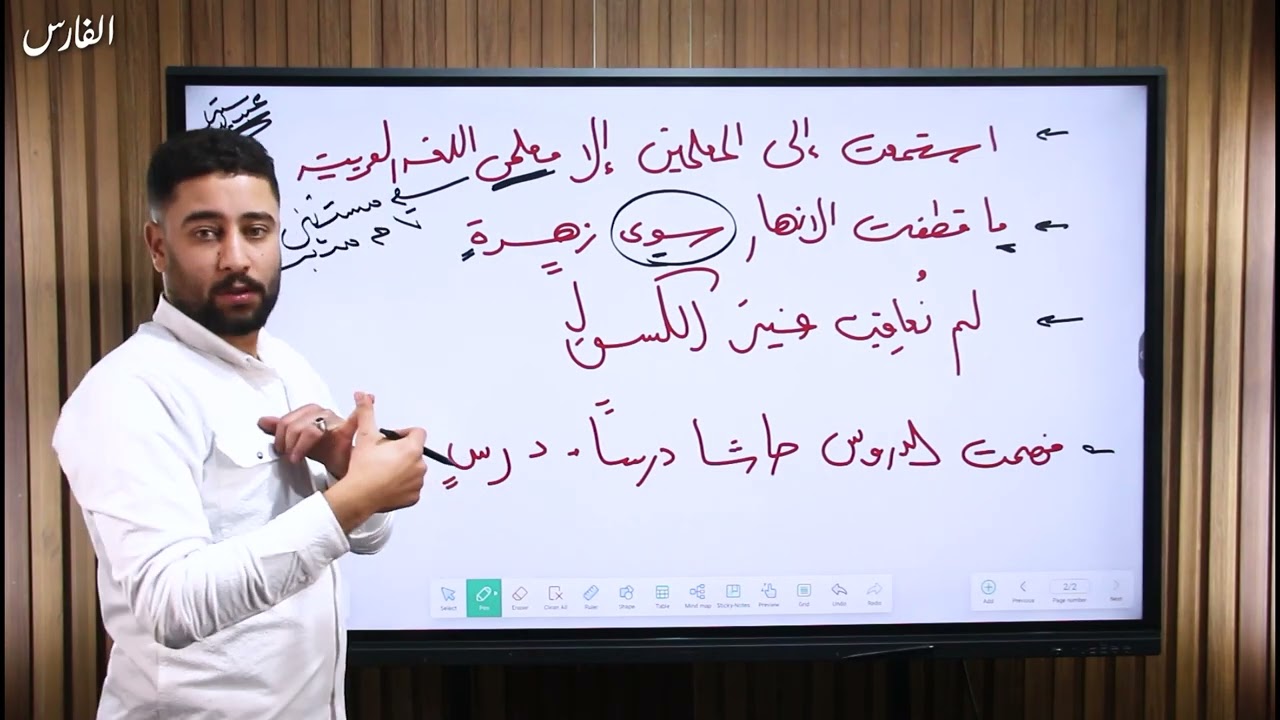 الفارس
← استمعت إلى المعلمين إلا معلمي اللغة العربية
مستثنى
← ما قطفت الازهار سوى زهرةٍ
← لم نُعاقِب غير الكسولِ
← فهمت الدروس حاشا درساً - درسٍ
Select Pen Eraser Clean All Ruler Shape Table Mind map Sticky-Notes Preview Grid Undo Redo
Add Previous 2/2 Page number Next